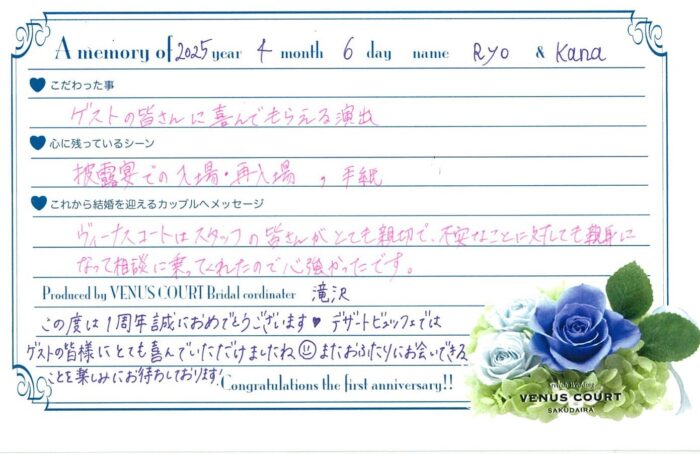 A memory of 2025 year 4 month 6 day name Ryo & Kana
こだわった事
ゲストの皆さんに喜んでもらえる演出
心に残っているシーン
披露宴での入場・再入場 、手紙
これから結婚を迎えるカップルへメッセージ
ヴィーナスコートはスタッフの皆さんがとても親切で、不安なことに対しても親身に
なって相談に乗ってくれたので心強かったです。
Produced by VENUS COURT Bridal cordinater 滝沢
この度は1周年誠におめでとうございます♥ デザートビュッフェでは
ゲストの皆様にとても喜んでいただけましたね☺またおふたりにお会いできる
ことを楽しみにお待ちしております!
Congratulations the first anniversary!!
VENUS COURT
SAKUDAIRA